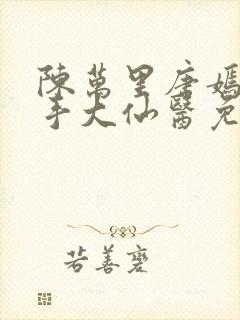 陳萬里唐嫣
手大仙醫免
若善